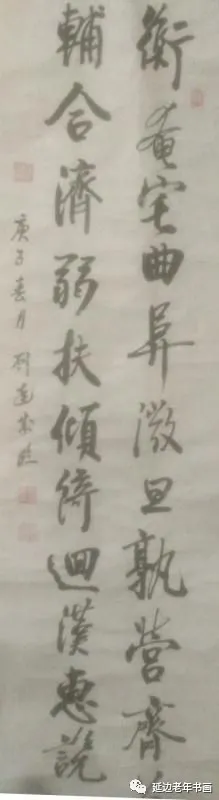 衡奄宅曲阜微旦孰營齊
輔合濟弱扶傾綺迴漢惠說
庚子春月
延边老年书画